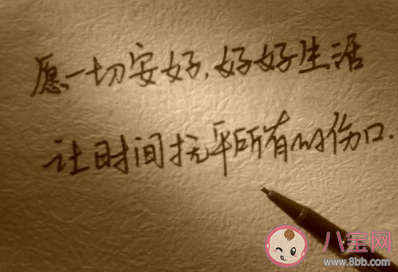 愿一切安好,好好生活
让时间抚平所有的伤口.
八宝网
www.8bb.com